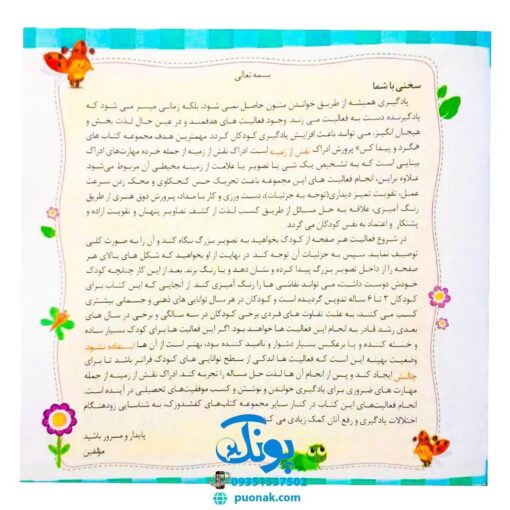 بسمه تعالی
سخنی با شما
یادگیری همیشه از طریق خواندن متون حاصل نمی شود، بلکه زمانی میسر می شود که
یادگیرنده دست به فعالیت می زند. وجود فعالیت های هدفمند و در عین حال لذت بخش و
هیجان انگیز، می تواند باعث افزایش یادگیری کودکان گردد. مهمترین هدف مجموعه کتاب های
«بگرد و پیدا کن» پرورش ادراک نقش از زمینه است. ادراک نقش از زمینه از جمله خرده مهارت‌های ادراک
بینایی است که به تشخیص یک شی یا تصویر یا علامت از زمینه محیطی آن مربوط می‌شود.
علاوه براین، انجام فعالیت های این مجموعه باعث تحریک حس کنجکاوی و محک زدن سرعت
عمل، تقویت تمیز دیداری(توجه به جزئیات)، دست ورزی و کار با مداد، پرورش ذوق هنری از طریق
رنگ آمیزی، علاقه به حل مسائل از طریق کسب لذت از کشف تصاویر پنهان و تقویت اراده و
پشتکار و اعتماد به نفس کودکان می گردد.
در شروع فعالیت هر صفحه از کودک بخواهید به تصویر بزرگ نگاه کند و آن را به صورت کلی
توصیف نماید. سپس به جزئیات آن توجه کند. در نهایت از او بخواهید که شکل های بالای هر
صفحه را از داخل تصویر بزرگ پیدا کرده و نشان دهد و یا رنگ بزند. بعد از این کار چنانچه کودک
خودش دوست داشت، می تواند نقاشی ها را رنگ آمیزی کند. از آنجایی که این کتاب برای
کودکان ۳ تا ۶ ساله تدوین گردیده است و کودکان در هر سال توانایی های ذهنی و جسمانی بیشتری
کسب می کنند، به علت تفاوت های فردی برخی کودکان در سه سالگی و برخی در سال های
بعدی رشد قادر به انجام این فعالیت ها خواهند بود. اگر این فعالیت ها برای کودک بسیار ساده
و خسته کننده و یا برعکس بسیار دشوار و ناامید کننده بود، بهتر است از آن ها استفاده نشود.
وضعیت بهینه این است که فعالیت ها اندکی از سطح توانایی های کودک فراتر باشد تا برای
چالش ایجاد کند و پس از انجام آن ها لذت حل مساله را تجربه کند. ادراک نقش از زمینه از جمله
مهارت های ضروری برای یادگیری خواندن و نوشتن و کسب موفقیت‌های تحصیلی در آینده است
انجام فعالیت‌های این کتاب در کنار سایر مجموعه کتاب‌های کفشدوزک، به شناسایی زودهنگام
اختلالات یادگیری و رفع آنان کمک زیادی می کند
پایدار و مسرور باشید
مؤلفین
پونک
09351537502
puonak.com